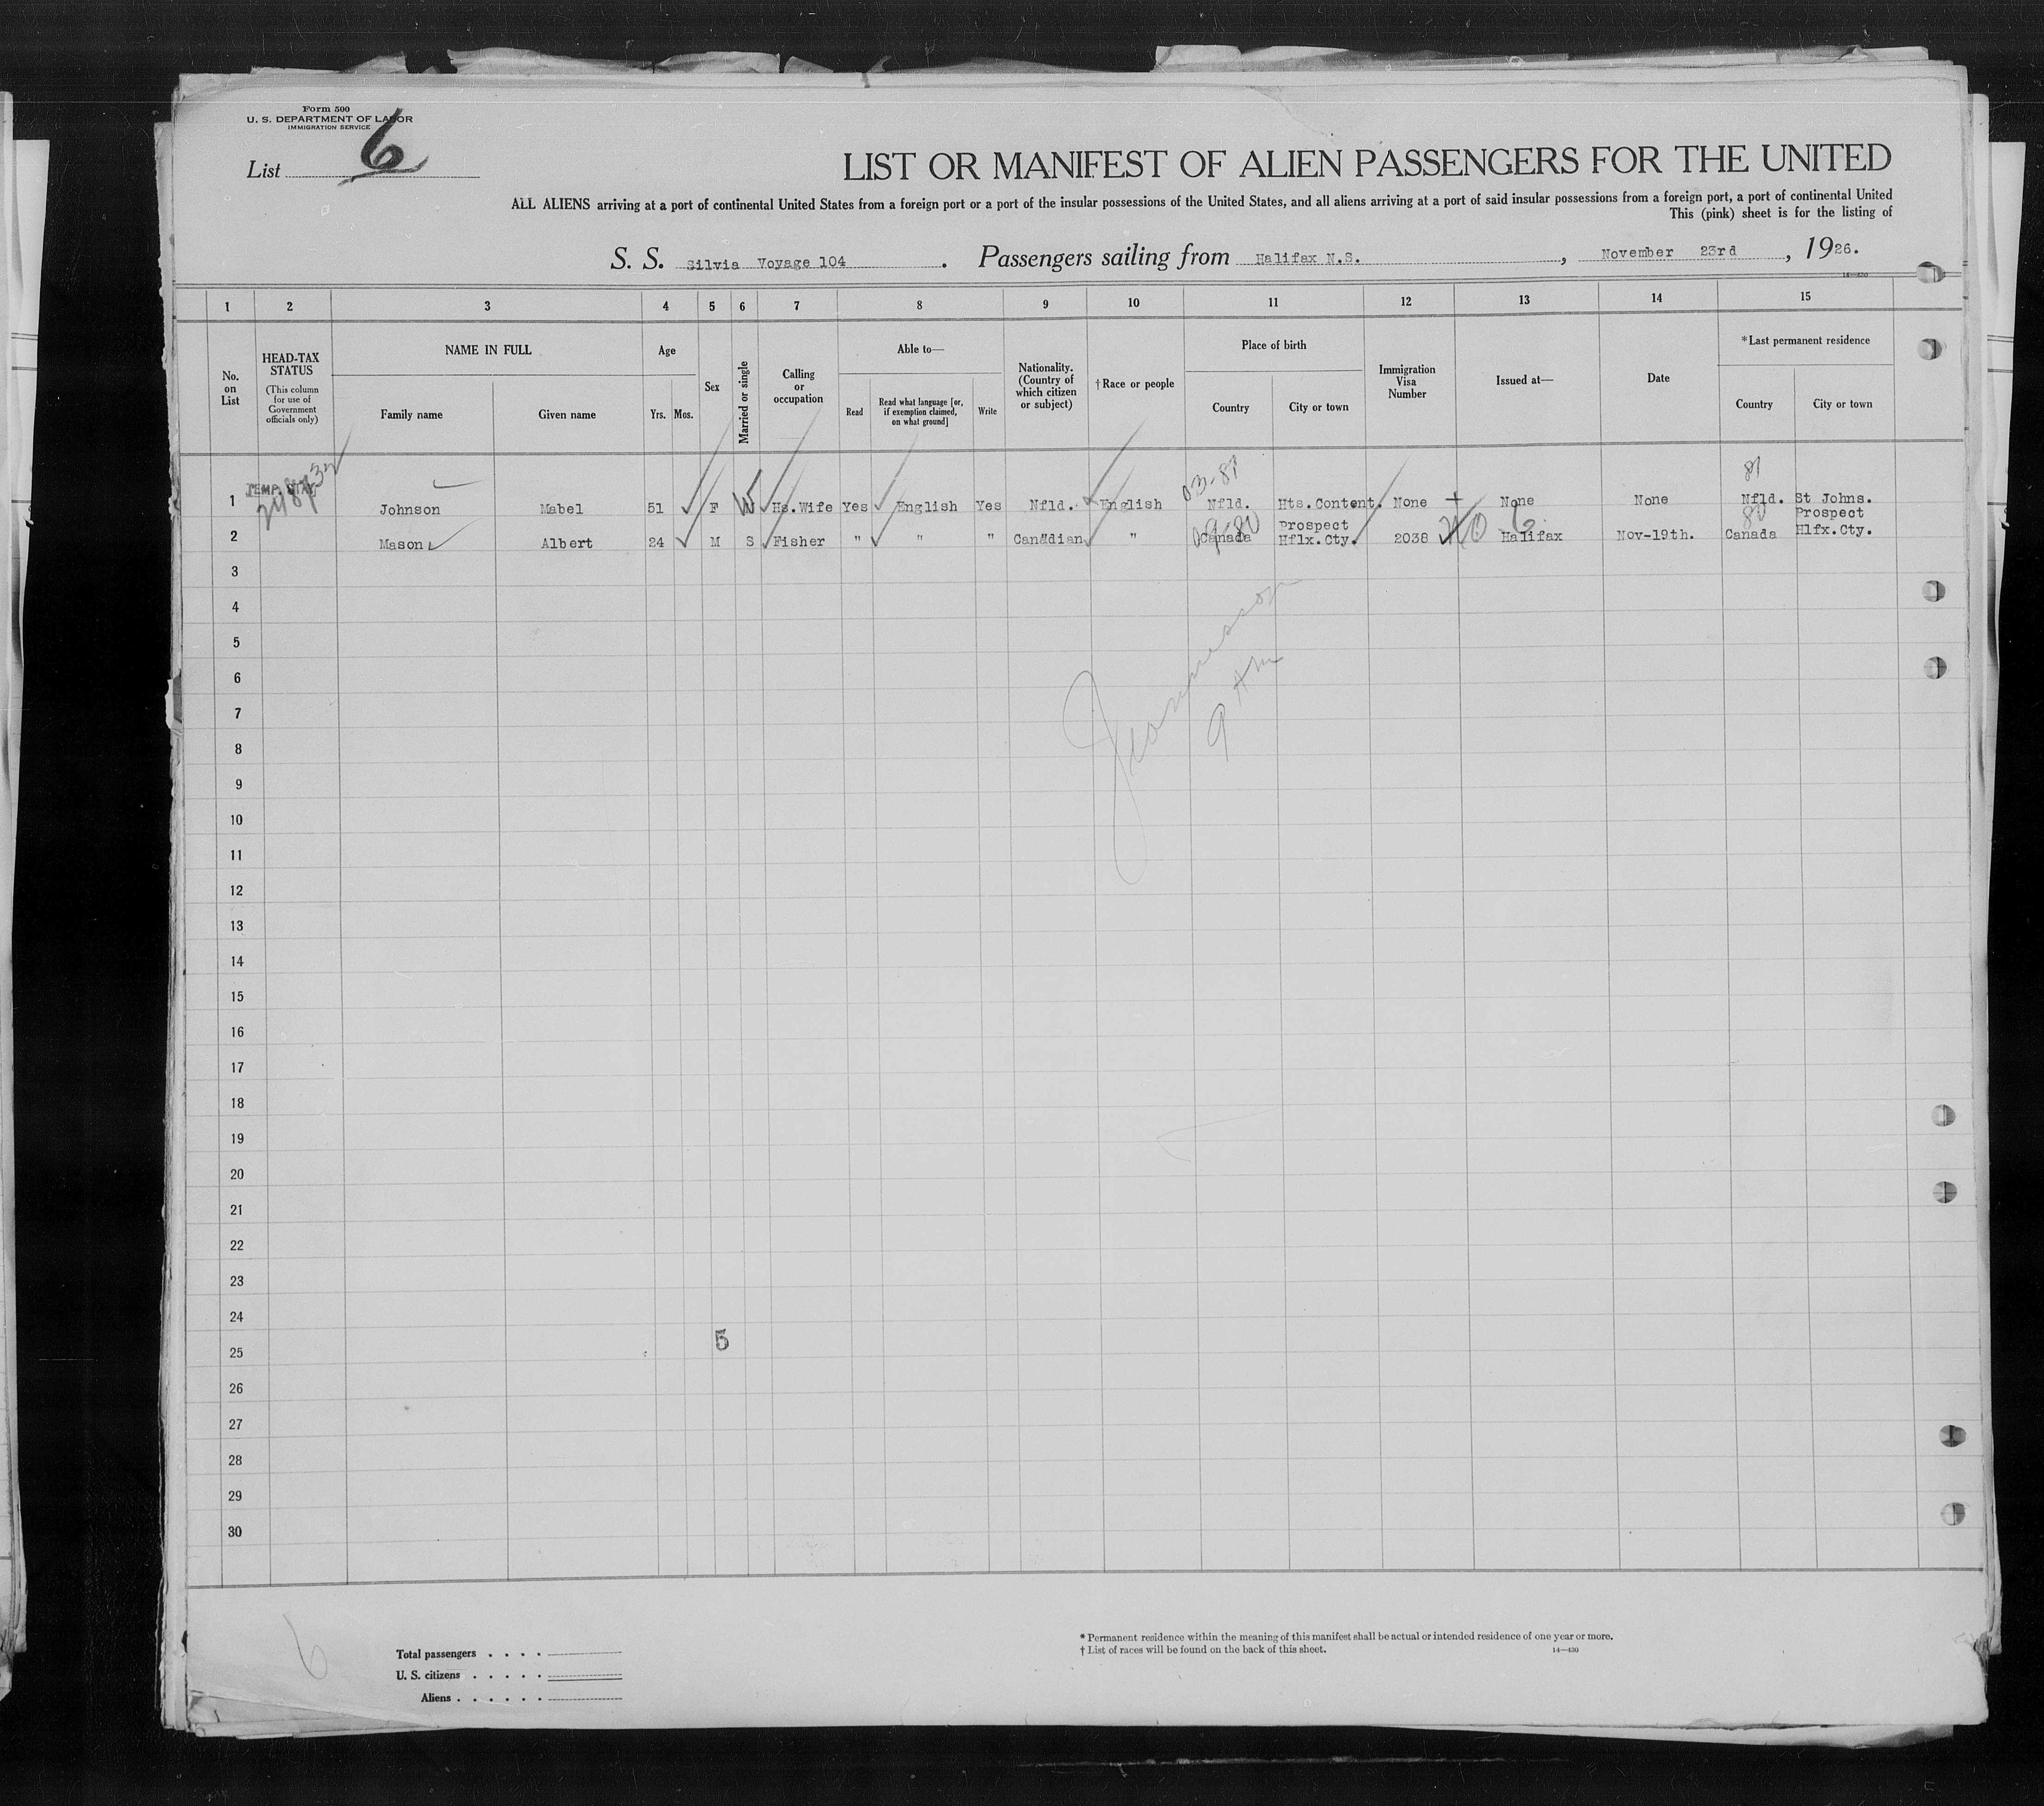 Form 500
U. S. DEPARTMENT OF LABOR
IMMIGRATION SERVICE
List 6
LIST OR MANIFEST OF ALIEN PASSENGERS FOR THE UNITED
ALL ALIENS arriving at a port of continental United States from a foreign port or a port of the insular possessions of the United States, and all aliens arriving at a port of said insular possessions from a foreign port, a port of continental United
This (pink) sheet is for the listing of
S. S. Silvia Voyage 104 . Passengers sailing from Halifax N.S. , November 23rd , 1926.
14—430
1 2 3 4 5 6 7 8 9 10 11 12 13 14 15
No. on List
HEAD-TAX STATUS
(This column for use of Government officials only)
NAME IN FULL
Family name
Given name
Age
Yrs. Mos.
Sex
Married or single
Calling or occupation
Able to—
Read
Read what language [or, if exemption claimed, on what ground]
Write
Nationality. (Country of which citizen or subject)
†Race or people
Place of birth
Country
City or town
Immigration Visa Number
Issued at—
Date
*Last permanent residence
Country
City or town
03-87 87
1 TEMP. STAY Johnson Mabel 51 F W Hs.Wife Yes English Yes Nfld. English Nfld. Hts.Content. None None None Nfld. St Johns.
80
2 Mason Albert 24 M S Fisher " " " Canadian " Canada Prospect Hflx.Cty. 2038 Halifax Nov-19th. Canada Prospect Hlfx.Cty.
3
4
5
6
9 AM
7
8
9
10
11
12
13
14
15
16
17
18
19
20
21
22
23
24
5
25
26
27
28
29
30
6
Total passengers . . . .
U. S. citizens . . . . .
Aliens . . . . . .
* Permanent residence within the meaning of this manifest shall be actual or intended residence of one year or more.
† List of races will be found on the back of this sheet. 14—430